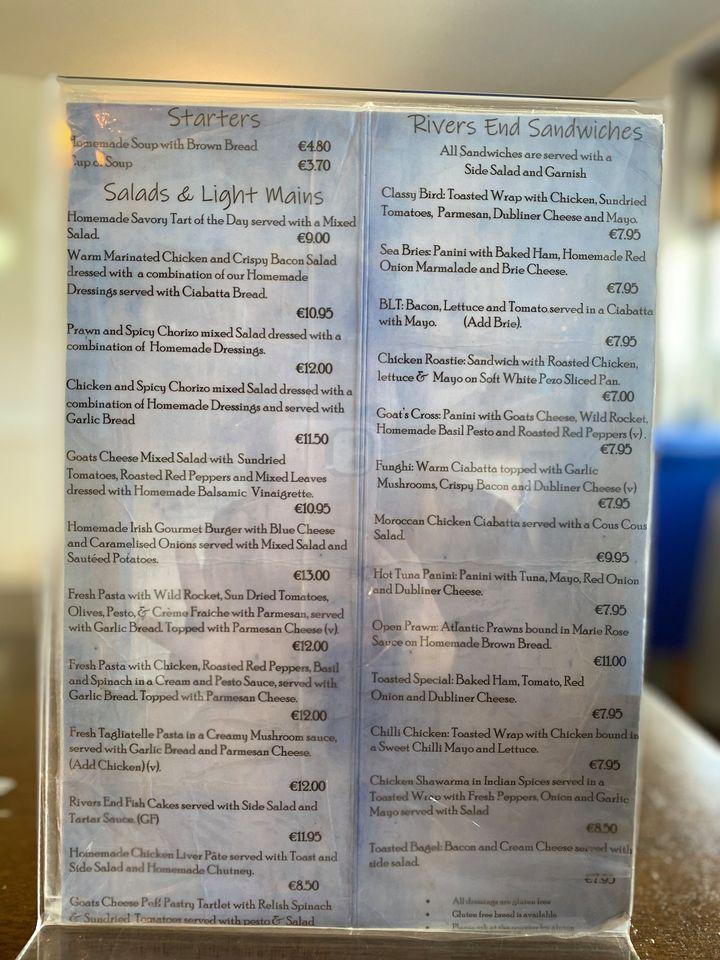 Starters
Homemade Soup with Brown Bread €4.80
Cup of Soup €3.70
Salads & Light Mains
Homemade Savory Tart of the Day served with a Mixed
Salad. €9.00
Warm Marinated Chicken and Crispy Bacon Salad
dressed with a combination of our Homemade
Dressings served with Ciabatta Bread.
€10.95
Prawn and Spicy Chorizo mixed Salad dressed with a
combination of Homemade Dressings.
€12.00
Chicken and Spicy Chorizo mixed Salad dressed with a
combination of Homemade Dressings and served with
Garlic Bread
€11.50
Goats Cheese Mixed Salad with Sundried
Tomatoes, Roasted Red Peppers and Mixed Leaves
dressed with Homemade Balsamic Vinaigrette.
€10.95
Homemade Irish Gourmet Burger with Blue Cheese
and Caramelised Onions served with Mixed Salad and
Sautéed Potatoes.
€13.00
Fresh Pasta with Wild Rocket, Sun Dried Tomatoes,
Olives, Pesto, & Crème Fraiche with Parmesan, served
with Garlic Bread. Topped with Parmesan Cheese (v).
€12.00
Fresh Pasta with Chicken, Roasted Red Peppers, Basil
and Spinach in a Cream and Pesto Sauce, served with
Garlic Bread. Topped with Parmesan Cheese.
€12.00
Fresh Tagliatelle Pasta in a Creamy Mushroom sauce,
served with Garlic Bread and Parmesan Cheese.
(Add Chicken) (v).
€12.00
Rivers End Fish Cakes served with Side Salad and
Tartar Sauce. (GF)
€11.95
Homemade Chicken Liver Pâte served with Toast and
Side Salad and Homemade Chutney.
€8.50
Goats Cheese Puff Pastry Tartlet with Relish Spinach
& Sundried Tomatoes served with pesto & Salad
Rivers End Sandwiches
All Sandwiches are served with a
Side Salad and Garnish
Classy Bird: Toasted Wrap with Chicken, Sundried
Tomatoes, Parmesan, Dubliner Cheese and Mayo.
€7.95
Sea Bries: Panini with Baked Ham, Homemade Red
Onion Marmalade and Brie Cheese.
€7.95
BLT: Bacon, Lettuce and Tomato served in a Ciabatta
with Mayo. (Add Brie).
€7.95
Chicken Roastie: Sandwich with Roasted Chicken,
lettuce & Mayo on Soft White Pezo Sliced Pan.
€7.00
Goat's Cross: Panini with Goats Cheese, Wild Rocket,
Homemade Basil Pesto and Roasted Red Peppers (v).
€7.95
Funghi: Warm Ciabatta topped with Garlic
Mushrooms, Crispy Bacon and Dubliner Cheese (v)
€7.95
Moroccan Chicken Ciabatta served with a Cous Cous
Salad.
€9.95
Hot Tuna Panini: Panini with Tuna, Mayo, Red Onion
and Dubliner Cheese.
€7.95
Open Prawn: Atlantic Prawns bound in Marie Rose
Sauce on Homemade Brown Bread.
€11.00
Toasted Special: Baked Ham, Tomato, Red
Onion and Dubliner Cheese.
€7.95
Chilli Chicken: Toasted Wrap with Chicken bound in
a Sweet Chilli Mayo and Lettuce.
€7.95
Chicken Shawarma in Indian Spices served in a
Toasted Wrap with Fresh Peppers, Onion and Garlic
Mayo served with Salad
€8.50
Toasted Bagel: Bacon and Cream Cheese served with
side salad.
€7.95
• All dressings are gluten free
• Gluten free bread is available
• Please ask at the counter for gluten